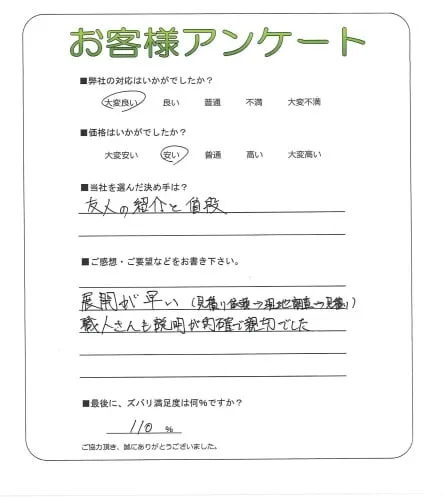 お客様アンケート
■弊社の対応はいかがでしたか？
大変良い 良い 普通 不満 大変不満
■価格はいかがでしたか？
大変安い 安い 普通 高い 大変高い
■当社を選んだ決め手は？
友人の紹介と値段
■ご感想・ご要望などをお書き下さい。
展開が早い（見積り依頼→現地調査→見積り）
職人さんも説明が的確で親切でした
■最後に、ズバリ満足度は何％ですか？
110 ％
ご協力頂き、誠にありがとうございました。